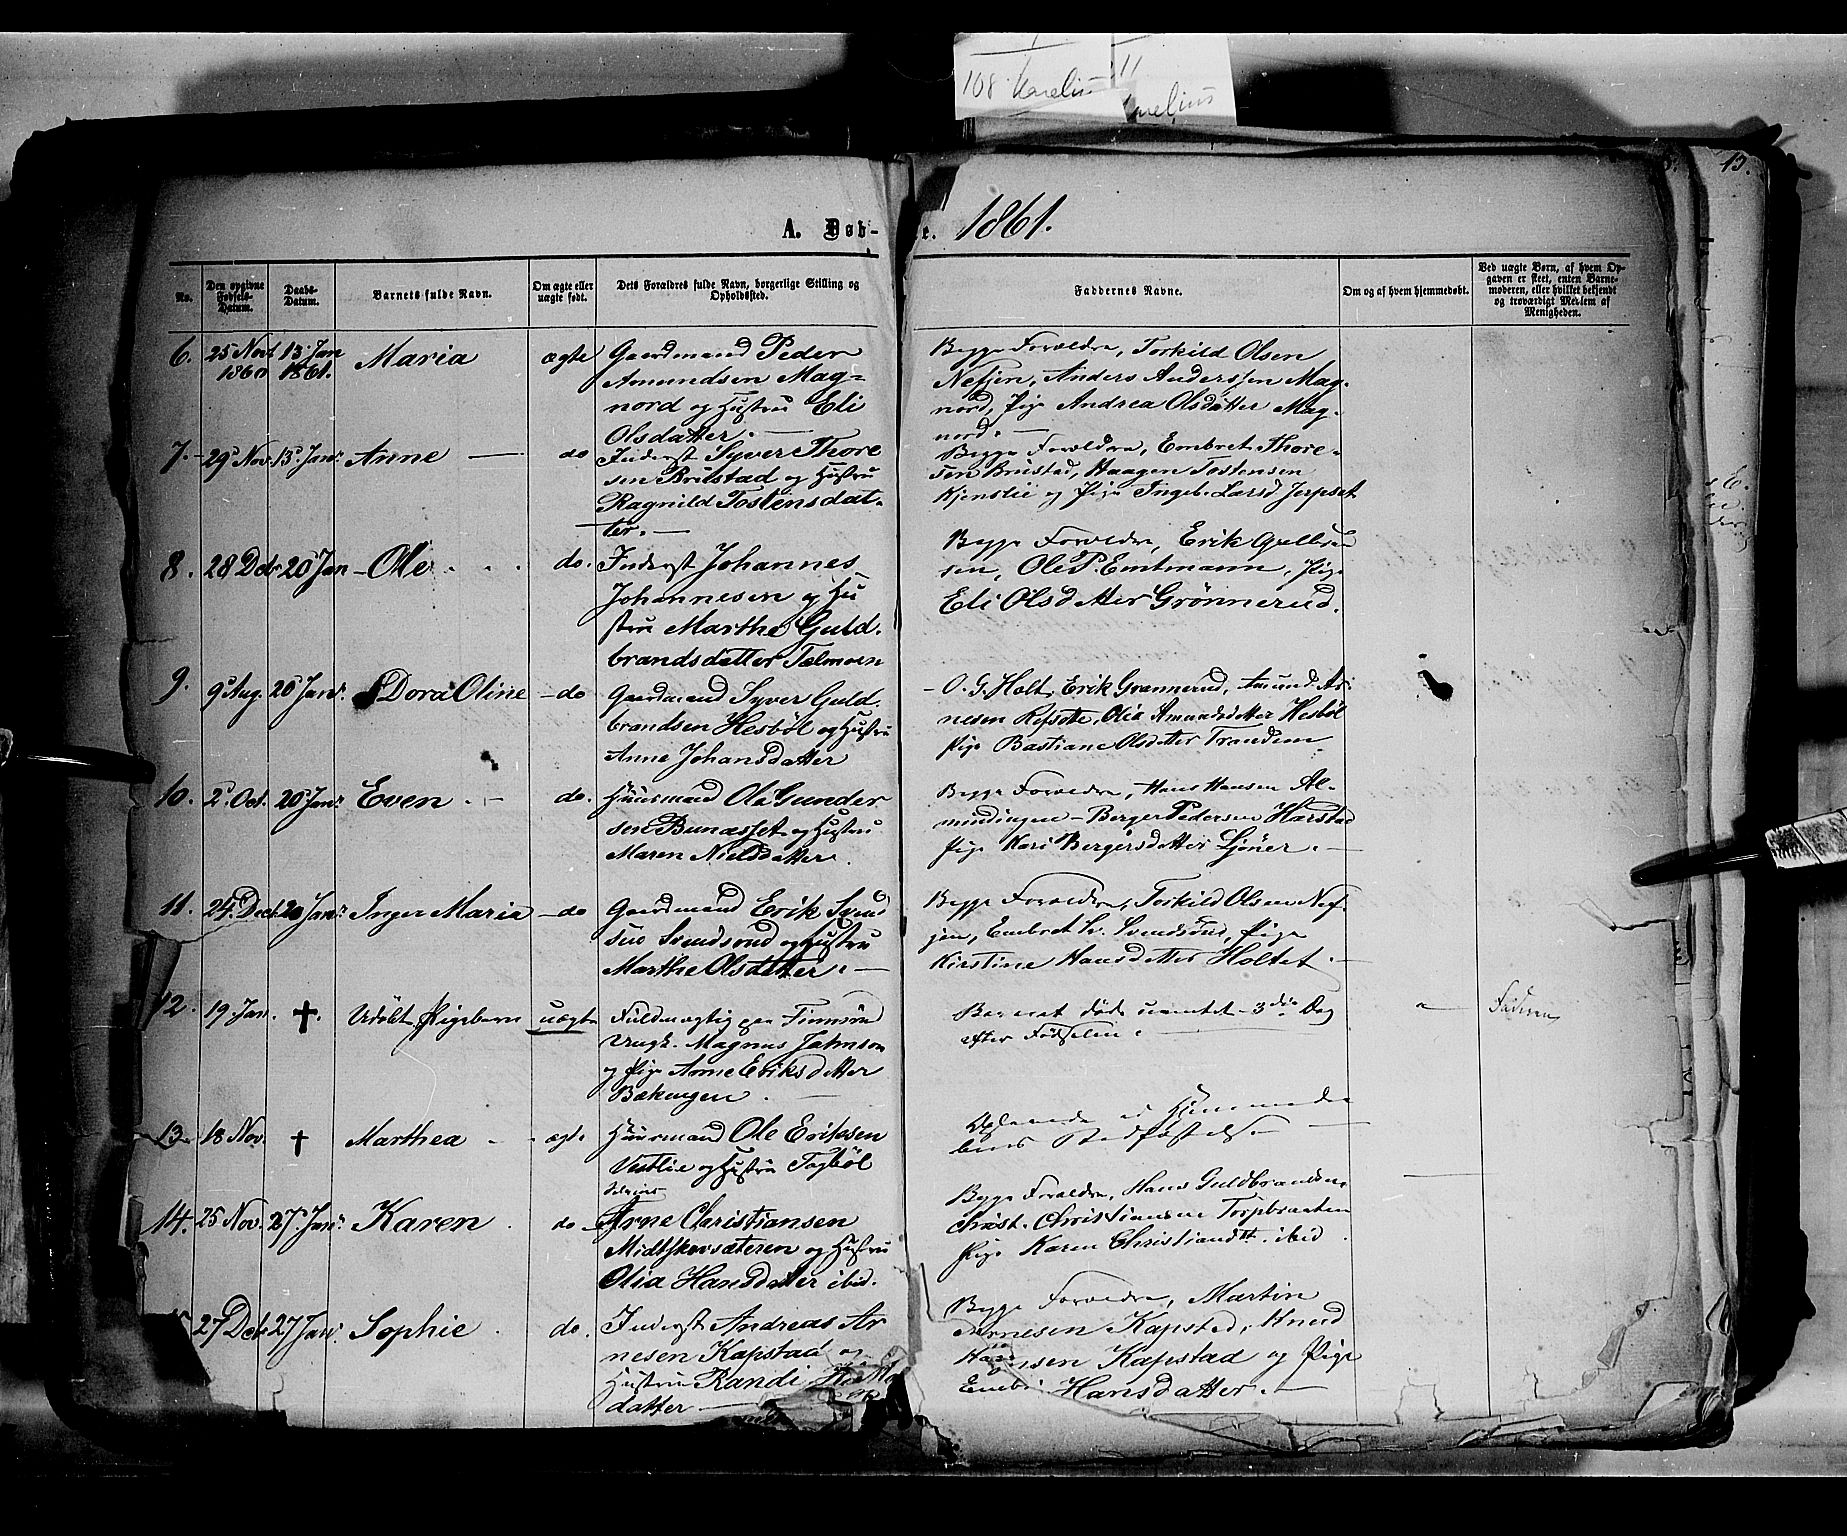 108 Karelius
11
Karelius
13.
A. Døb-
e. 1861.
No.
Den opgivne Fødsels-Datum.
Daabs-Datum.
Barnets fulde Navn.
Om ægte eller uægte født.
Dets Forældres fulde Navn, borgerlige Stilling og Opholdssted.
Faddernes Navne.
Om og af hvem hjemmedøbt.
Ved uægte Børn, af hvem Opgaven er skeet, enten Barnemoderen, eller hvilket bekjendt og troværdigt Medlem af Menigheden.
6. 25 Novb 1860 13 Jan 1861. Maria ægte
Gaardmand Peder
Amundsen Mag-
nord og Hustru Eli
Olsdatter. —
Begge Forældre, Torkild Olsen
Nefjen, Anders Anderssen Mag-
nord, Pige Andrea Olsdatter Mag-
nord. —
7. 29 Nov. 13 Jan. Anne — do
Inderst Syver Thore
sen Brustad og Hustru
Ragnild Tostensdat-
ter. —
Begge Forældre, Embret Thore-
sen Brustad, Haagen Tostensen
Kjenslie og Pige Ingeb. Larsd Jerpset
8. 28 Dcb 20 Jan Ole do.
Inderst Johannes
Johannesen og Hu
stru Marthe Guld-
brandsdatter Tælmoen
Begge Forældre, Erik Gulbrand
sen, Ole P. Embmann, Pige
Eli Olsdatter Grønnerud.
9. 9 Aug. 20 Jan. Dora Oline — do
Gaardmand Syver Guld-
brandsen Hesbøl og Hustru
Anne Johansdatter
— O. G. Holt, Erik Grønnerud, Amund Ar-
nesen Refsæte, Olia Amundsdatter Hesbøl
Pige Bastiane Olsdatter Trandem
10. 2 Oct. 20 Jan. Even. — do.
Huusmand Ole Gunder
sen Bunæsset og Hustru
Maren Nielsdatter.
Begge Forældre, Hans Hansen Al-
mindingen — Berger Pedersen Harstad
Pige Kari Bergersdatter Ljøner. —
11. 24. Dec. 20 Jan. Inger Maria — do
Gaardmand Erik Svend
sen Svendsrud og Hustru
Marthe Olsdatter. —
Begge Forældre, Torkild Olsen Nef-
jen, Embret Sv. Svendsrud, Pige
Kirstine Hansdatter Holtet. —
12. 19. Jan. †. Udøbt Pigebarn uægte
Fuldmægtig paa
Magnus Jahnson
og Pige Anne Eriksdatter
Bækengen.
Barnet døde uventet 3die Dag
efter Fødselen.
Faderen
13. 18 Nov. † Marthea ægte
Huusmand Ole Eriksen
Vestlie og Hustru Tagbøl
Døde
Stadfæstelse —
14. 25 Nov. 27 Jan. Karen. do
Arne Christiansen
Midtskovsæteren og Hustru
Olia Hansdatter ibid.
Begge Forældre, Hans Guldbrandsen,
Christ. Christiansen Torpbraaten
Pige Karen Christiansdtr. ibid.
27 Dcb 27 Jan. Sophie. do.
Inderst Andreas Ar
nesen Kapstad og
Hustru Randi
datter —
Begge Forældre, Martin
Arnesen Kapstad, Knud
Hansen Kapstad og Pige
Hansdatter. —